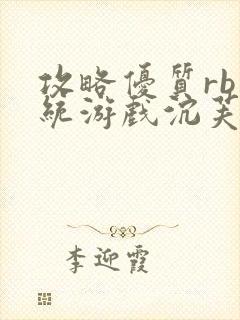 攻略優質rb系
統游戲沉芙
李迎霞